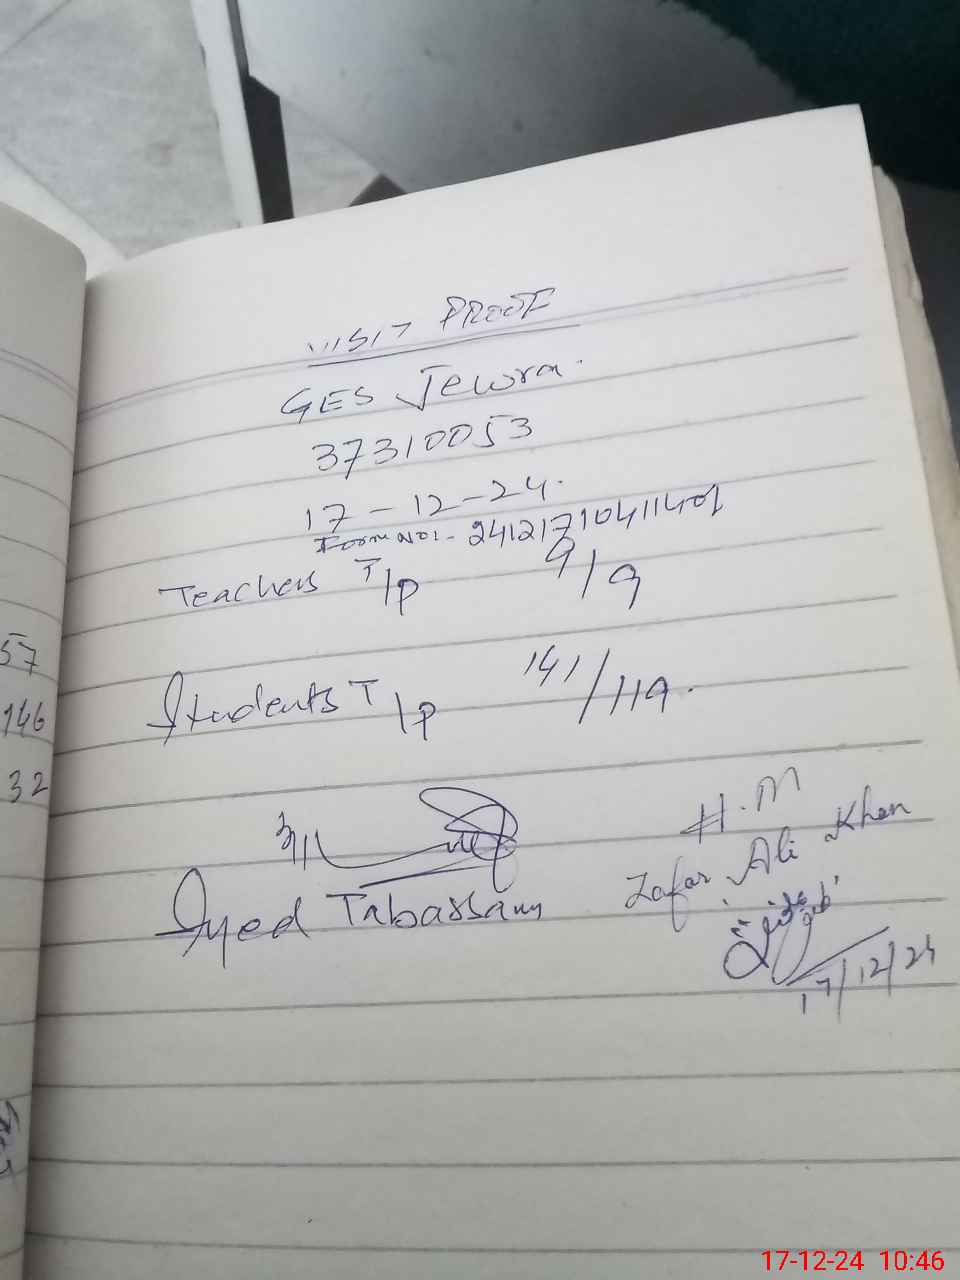 VISIT PROOF
GES Jewra.
37310053
17-12-24.
Form No:- 24121710411401
Teachers T/P 9/9
Students T/P 141/119.
Syed Tabassam
H.M
Zafar Ali Khan
17/12/24
57
146
32
17-12-24 10:46